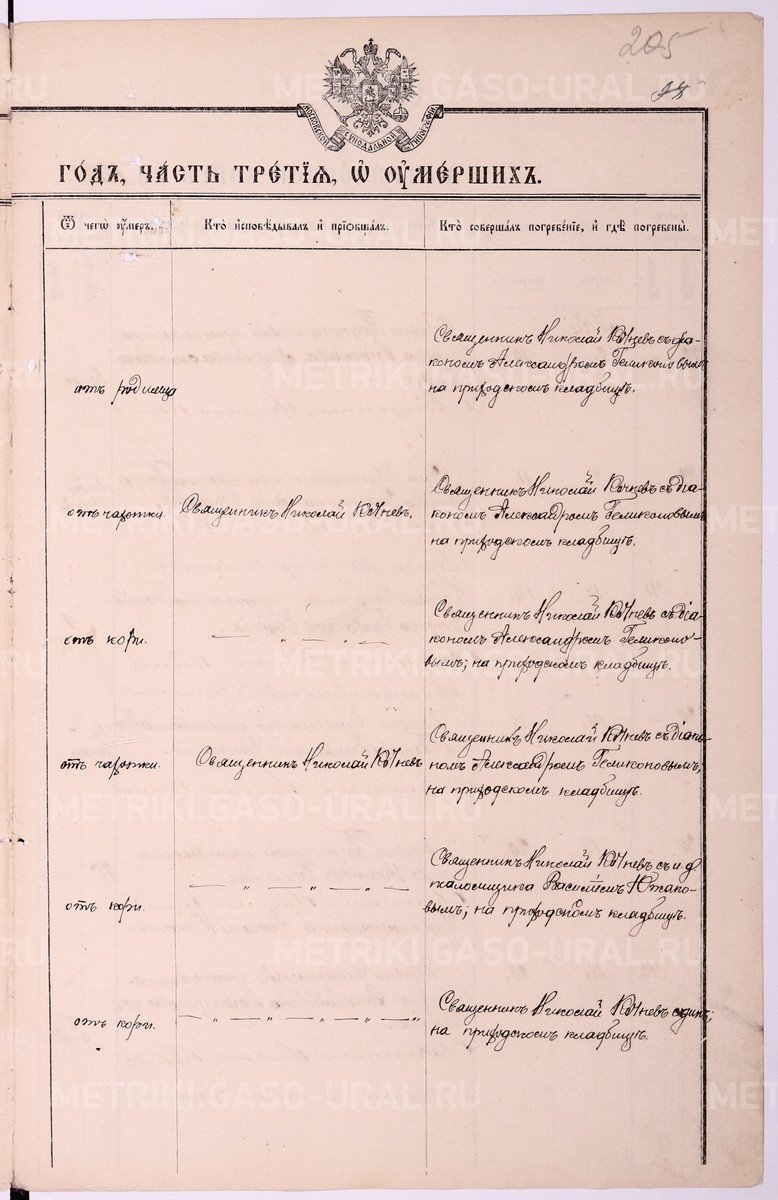 205
28
МОСКОВСКОЙ СѴНОДАЛЬНОЙ ТИПОГРАФІИ
ГОДЪ, ЧАСТЬ ТРЕТІЯ, Ѡ ОУМЕРШИХЪ.
Ѿ чегѡ оумеръ.
Кто исповѣдывалъ и пріобщалъ.
Кто совершалъ погребеніе, и гдѣ погребены.
отъ родимца
Священникъ Николай Кочневъ съ діа-
кономъ Александромъ Геликоновымъ
на приходскомъ кладбищѣ.
отъ чахотки.
Священникъ Николай Кочневъ.
Священникъ Николай Кочневъ съ діа-
кономъ Александромъ Геликоновымъ
на приходскомъ кладбищѣ.
отъ кори.
— „ — „ —
Священникъ Николай Кочневъ съ діа-
кономъ Александромъ Геликоно-
вымъ; на приходскомъ кладбищѣ.
отъ чахотки.
Священникъ Николай Кочневъ
Священникъ Николай Кочневъ съ діако-
номъ Александромъ Геликоновымъ;
на приходскомъ кладбищѣ.
отъ кори.
— „ — „ — „ —
Священникъ Николай Кочневъ съ и. д.
псаломщика Василіемъ
вымъ; на приходскомъ кладбищѣ.
отъ кори.
— „ — „ — „ — „ — „
Священникъ Николай Кочневъ одинъ;
на приходскомъ кладбищѣ.
METRIKI.GASO-URAL.RU